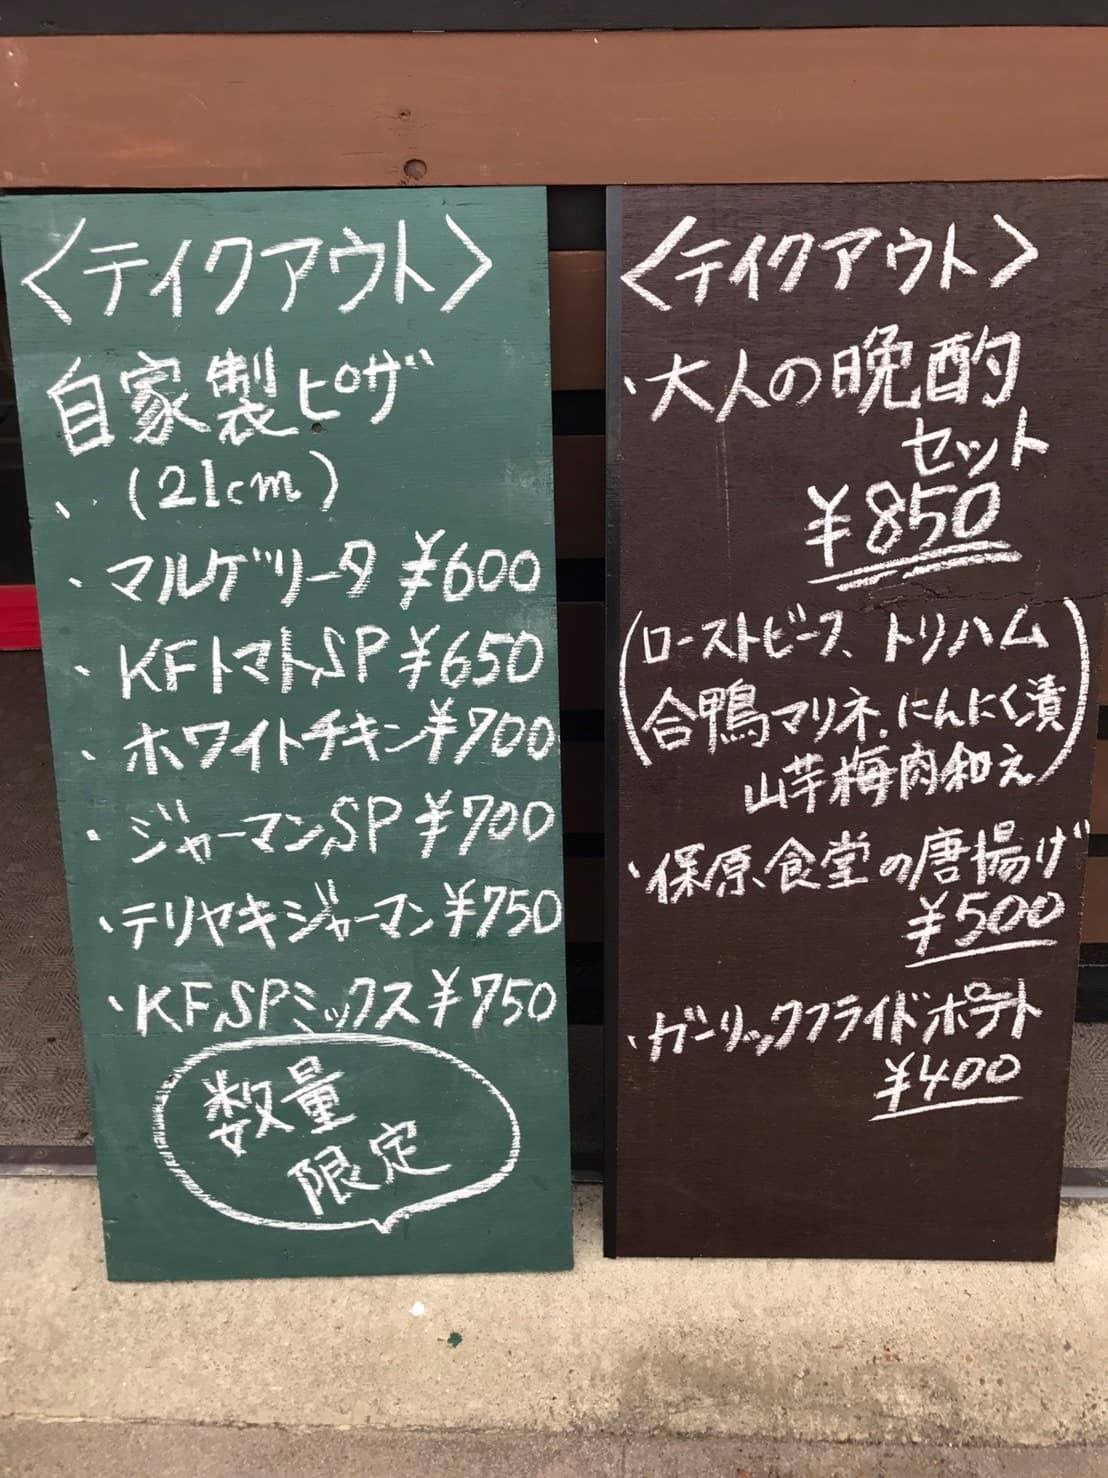 〈テイクアウト〉
自家製ピザ
、(21cm)
・マルゲリータ ¥600
・KFトマトSP ¥650
・ホワイトチキン ¥700
・ジャーマンSP ¥700
・テリヤキジャーマン ¥750
・KFSPミックス ¥750
数量
限定
〈テイクアウト〉
・大人の晩酌
セット
¥850
(ローストビーフ、トリハム
合鴨マリネ、にんにく漬
山芋梅肉和え)
・保原食堂の唐揚げ
¥500
・ガーリックフライドポテト
¥400